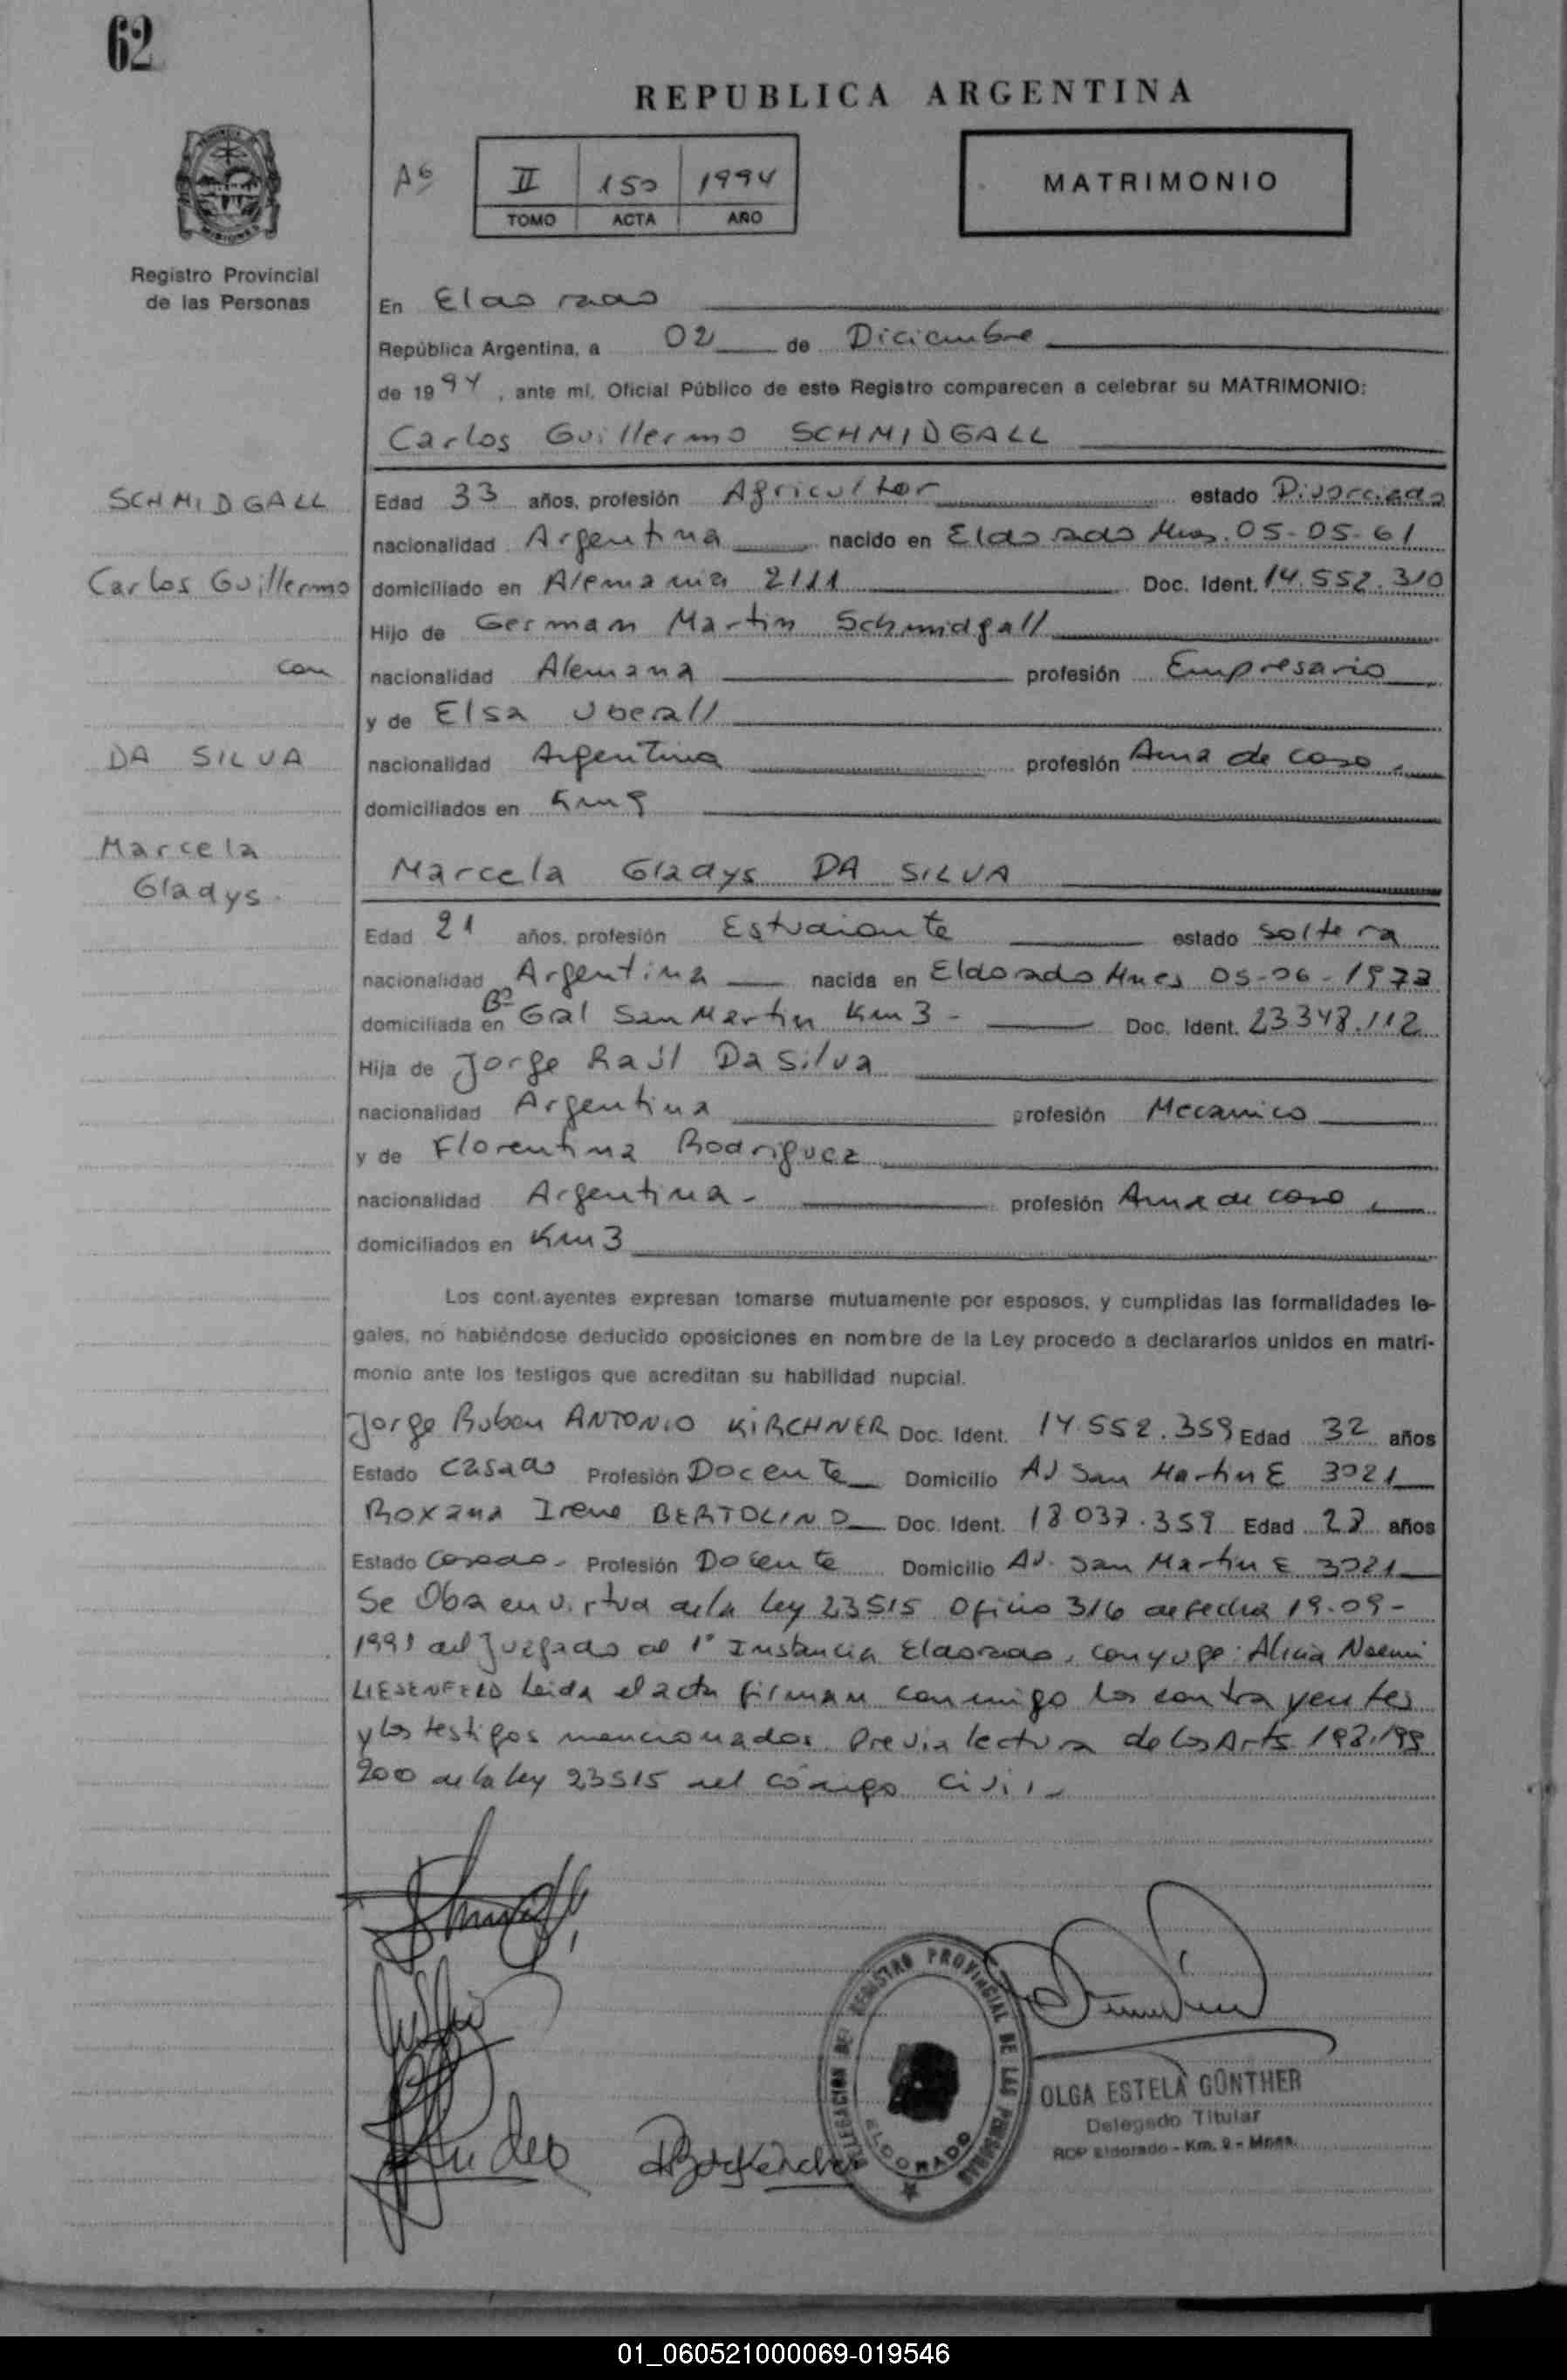 62
REPUBLICA ARGENTINA
II 150 1994
TOMO ACTA AÑO
MATRIMONIO
MISIONES
Registro Provincial
de las Personas
En Eldorado
República Argentina, a 02 de Diciembre
de 1994, ante mí, Oficial Público de este Registro comparecen a celebrar su MATRIMONIO:
Carlos Guillermo SCHMIDGALL
SCHMIDGALL
Carlos Guillermo
con
DA SILVA
Marcela
Gladys.
Edad 33 años, profesión Agricultor estado Divorciado
nacionalidad Argentina nacido en Eldorado Mnes. 05-05-61
domiciliado en Alemania 2111 Doc. Ident. 14.552.310
Hijo de German Martin Schmidgall
nacionalidad Alemana profesión Empresario
y de Elsa Uberall
nacionalidad Argentina profesión Ama de casa
domiciliados en Km 9
Marcela Gladys DA SILVA
Edad 21 años, profesión Estudiante estado soltera
nacionalidad Argentina nacida en Eldorado Mnes 05-06-1973
domiciliada en Bº Gral San Martin Km 3 - Doc. Ident. 23348.112
Hija de Jorge Raúl Da Silva
nacionalidad Argentina profesión Mecanico
y de Florentina Rodriguez
nacionalidad Argentina - profesión Ama de casa
domiciliados en Km 3
Los contrayentes expresan tomarse mutuamente por esposos, y cumplidas las formalidades le-
gales, no habiéndose deducido oposiciones en nombre de la Ley procedo a declararlos unidos en matri-
monio ante los testigos que acreditan su habilidad nupcial.
Jorge Ruben ANTONIO KIRCHNER Doc. Ident. 14.552.359 Edad 32 años
Estado Casado Profesión Docente Domicilio AV San Martin E 3021
Roxana Irene BERTOLINO Doc. Ident. 18 037.359 Edad 28 años
Estado Casado - Profesión Docente Domicilio AV. San Martin E 3021
Se Obra en virtud de la ley 23515 Oficio 316 de fecha 19-09-
1991 del Juzgado de 1° Instancia Eldorado, conyuge: Alicia Noemi
LIESENFELD Leida el acta firman conmigo los contrayentes
y los testigos mencionados. Previa lectura de los Arts 198, 199
200 de la ley 23515 del código civil
DELEGACION DEL REGISTRO PROVINCIAL DE LAS PERSONAS
ELDORADO
OLGA ESTELA GÜNTHER
Delegado Titular
RDP Eldorado - Km. 9 - Mnes.
01_060521000069-019546